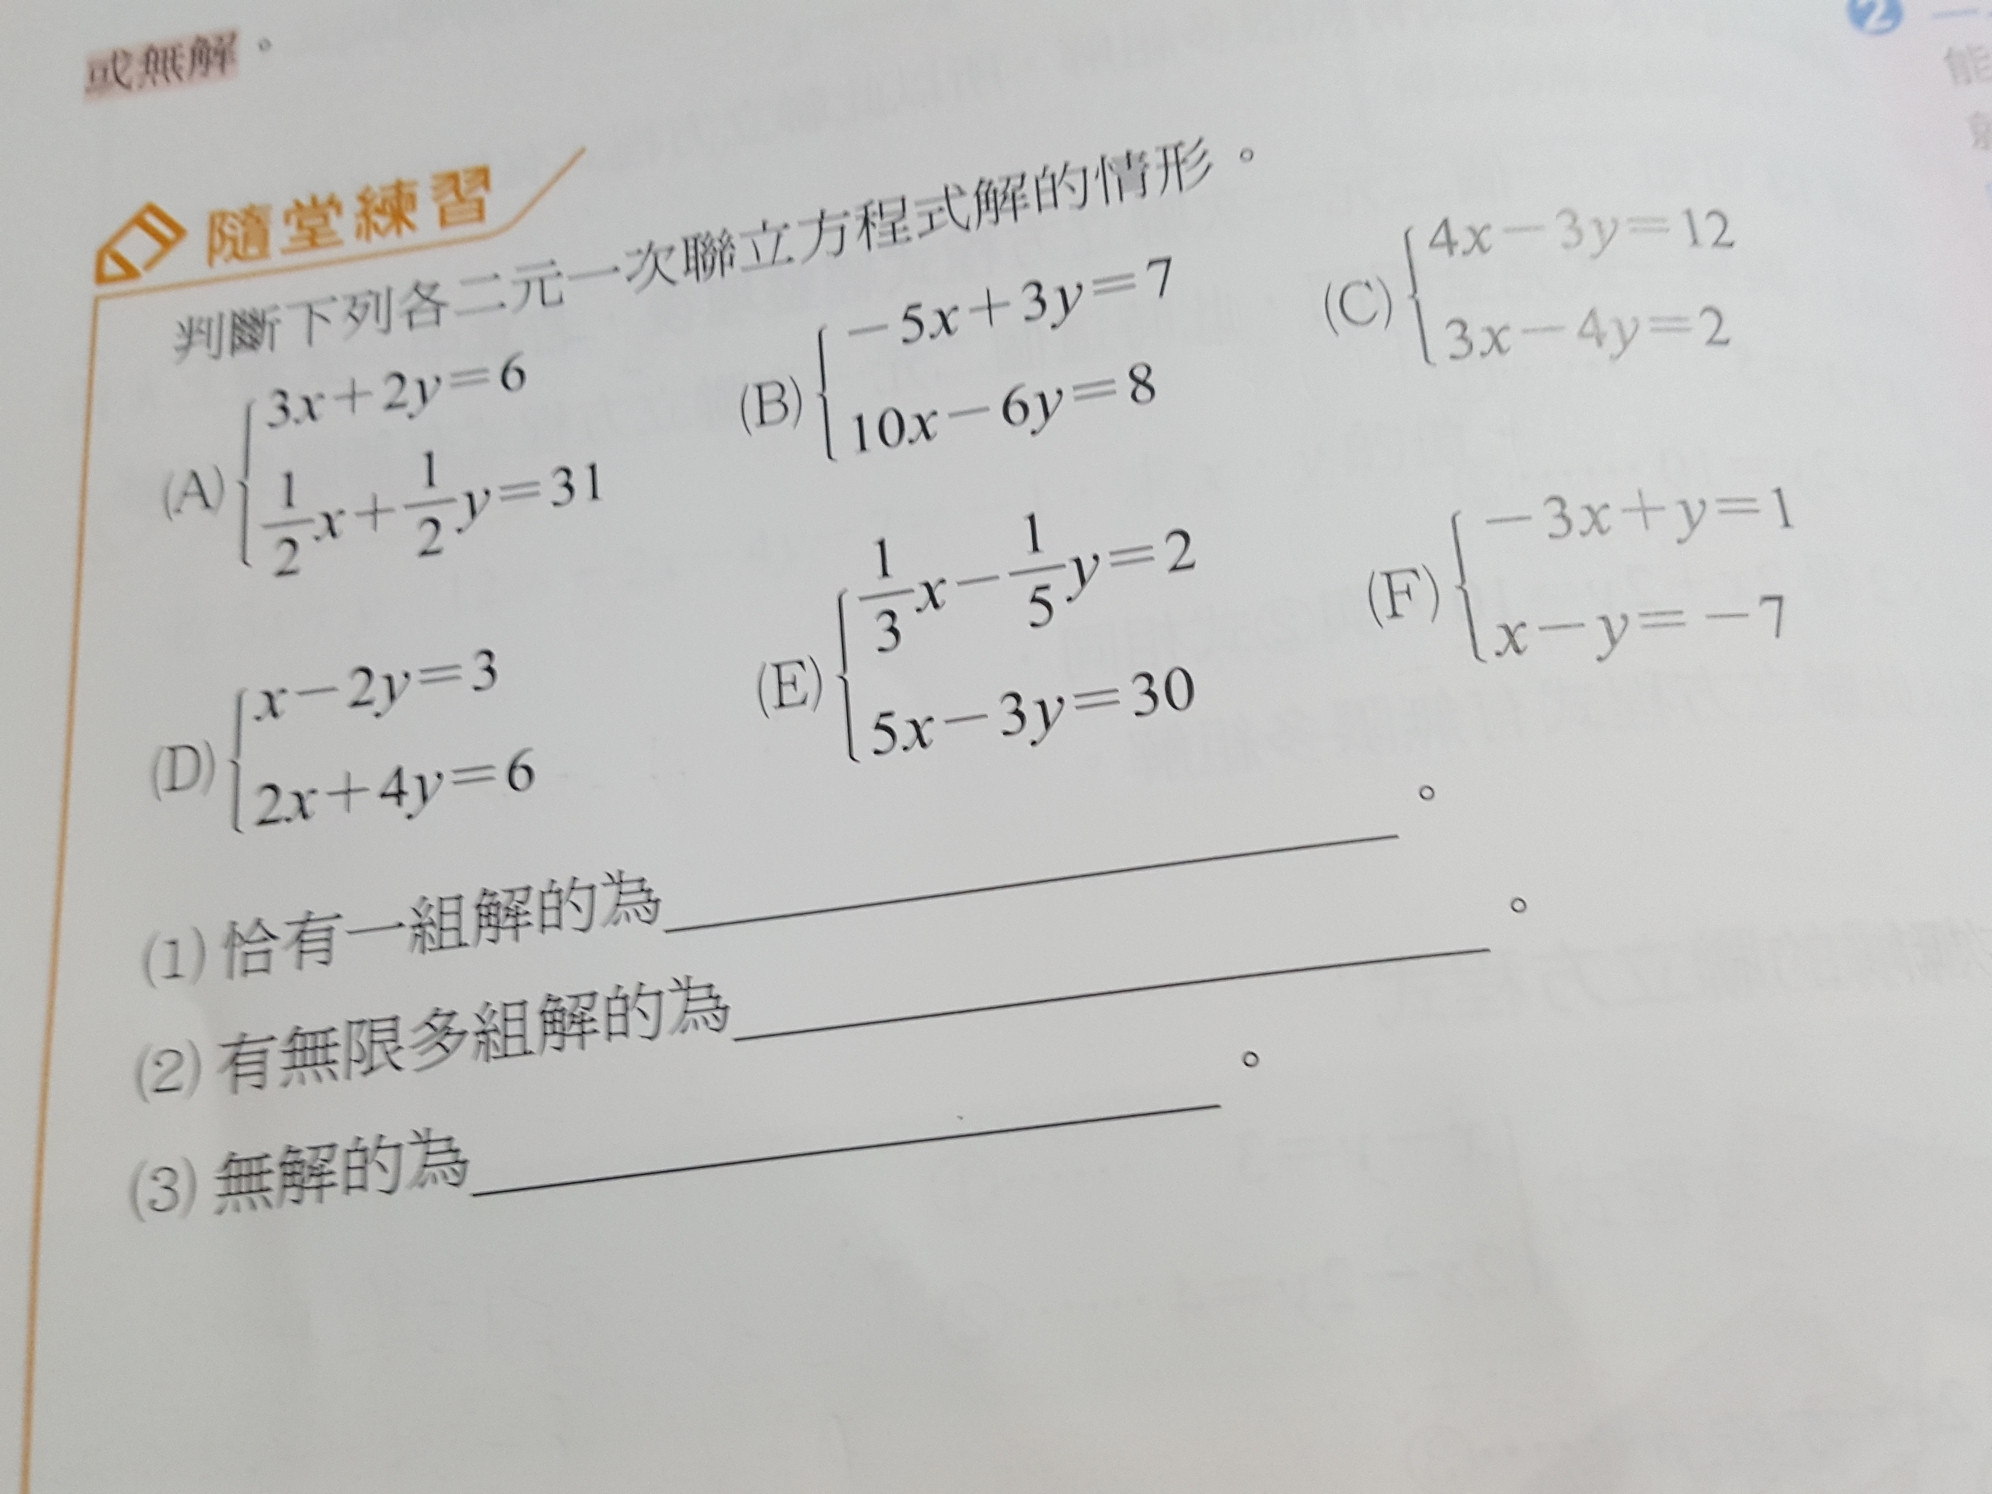 或無解。
2
能
隨堂練習
判斷下列各二元一次聯立方程式解的情形。
(A) { 3x+2y=6
1/2x+1/2y=31
(B) { −5x+3y=7
10x−6y=8
(C) { 4x−3y=12
3x−4y=2
(D) { x−2y=3
2x+4y=6
(E) { 1/3x−1/5y=2
5x−3y=30
(F) { −3x+y=1
x−y=−7
(1) 恰有一組解的為＿＿＿＿＿＿。
(2) 有無限多組解的為＿＿＿＿＿＿。
(3) 無解的為＿＿＿＿＿＿。